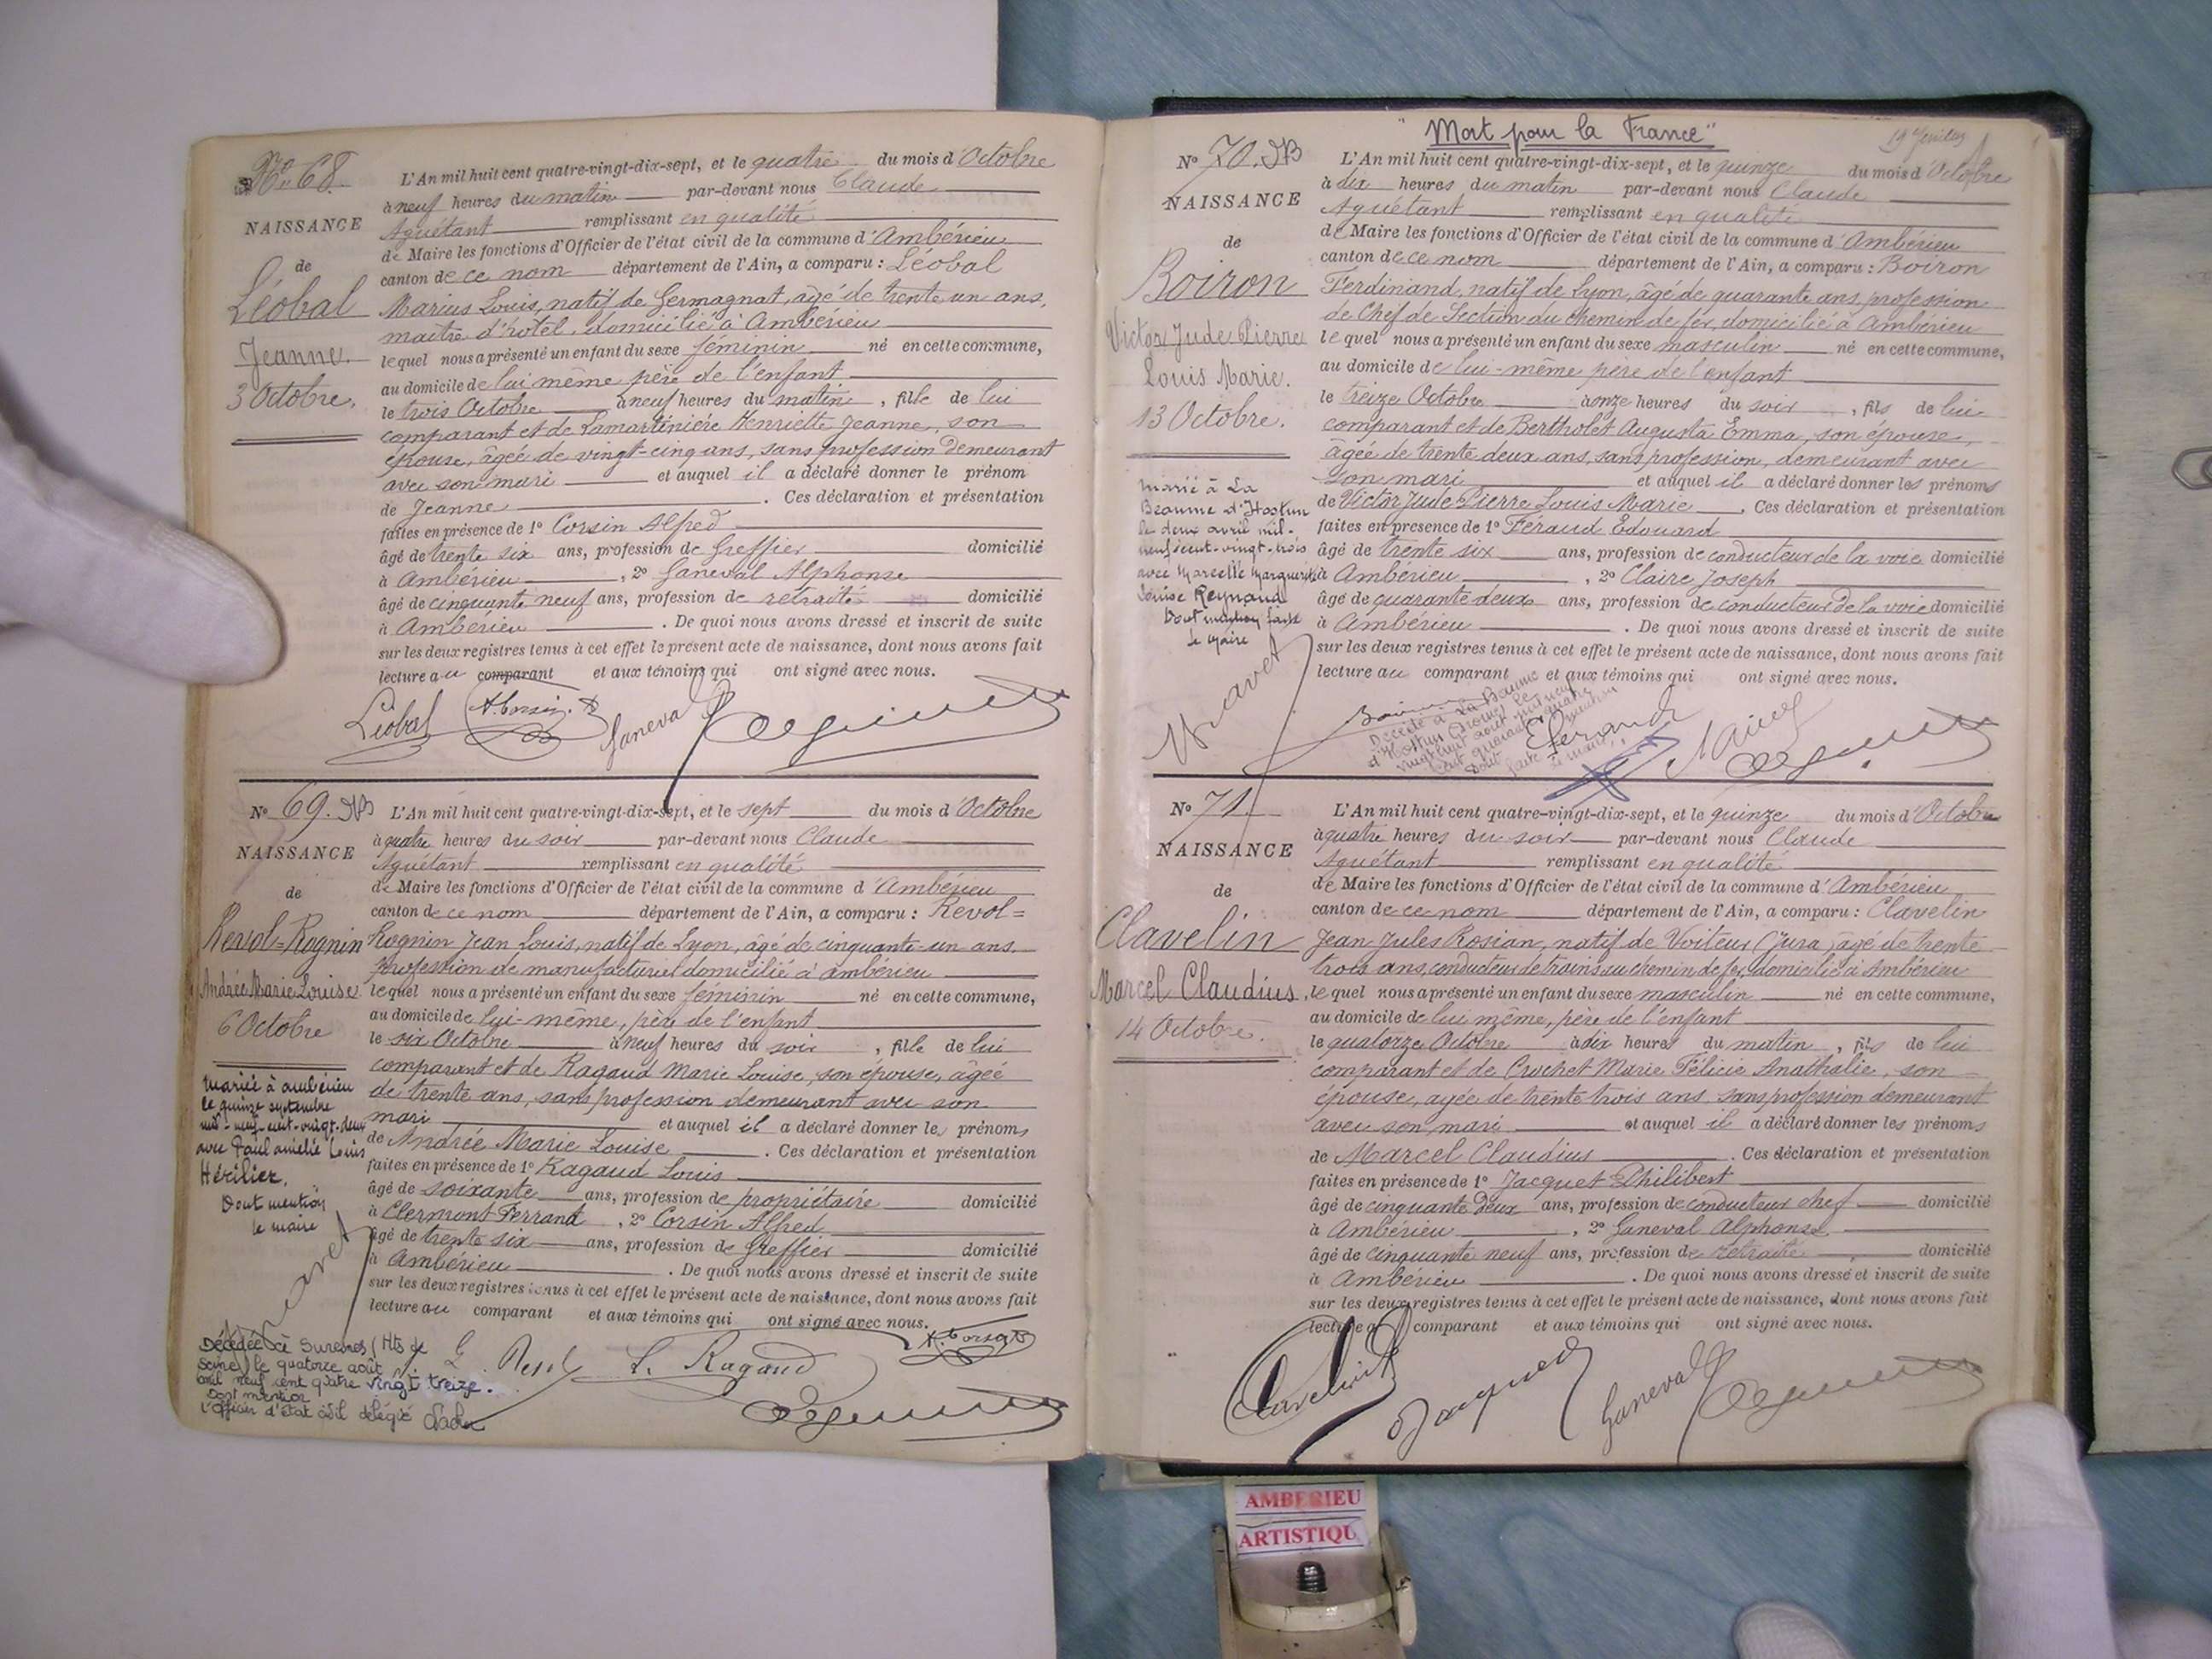 No 68.
NAISSANCE
de
Léobal
Jeanne.
3 Octobre.
L'An mil huit cent quatre-vingt-dix-sept, et le quatre du mois d'Octobre
à neuf heures du matin par-devant nous Claude
Aguétant remplissant en qualité
de Maire les fonctions d'Officier de l'état civil de la commune d'Ambérieu
canton de ce nom département de l'Ain, a comparu : Léobal
Marius Louis, natif de Germagnat, âgé de trente un ans,
maître d'hôtel, domicilié à Ambérieu
lequel nous a présenté un enfant du sexe féminin né en cette commune,
au domicile de lui même père de l'enfant
le trois Octobre à neuf heures du matin, fille de lui
comparant et de Lamartinière Henriette Jeanne, son
épouse, âgée de vingt-cinq ans, sans profession demeurant
avec son mari et auquel il a déclaré donner le prénom
de Jeanne. Ces déclaration et présentation
faites en présence de 1° Corsin Alfred
âgé de trente six ans, profession de Greffier domicilié
à Ambérieu, 2° Ganeval Alphonse
âgé de cinquante neuf ans, profession de retraité domicilié
à Ambérieu. De quoi nous avons dressé et inscrit de suite
sur les deux registres tenus à cet effet le présent acte de naissance, dont nous avons fait
lecture au comparant et aux témoins qui ont signé avec nous.
Léobal A. Corsin Ganeval
No 69.
NAISSANCE
de
Revol=Rognin
Andrée Marie Louise
6 Octobre
Mariée à Ambérieu
le quinze septembre
mil-neuf-cent-vingt-deux
avec Paul Amélie Louis
Hérilier.
Dont mention
le maire
L'An mil huit cent quatre-vingt-dix-sept, et le sept du mois d'Octobre
à quatre heures du soir par-devant nous Claude
Aguétant remplissant en qualité
de Maire les fonctions d'Officier de l'état civil de la commune d'Ambérieu
canton de ce nom département de l'Ain, a comparu : Revol=
Rognin Jean Louis, natif de Lyon, âgé de cinquante-un ans.
profession de manufacturier domicilié à Ambérieu
lequel nous a présenté un enfant du sexe féminin né en cette commune,
au domicile de lui-même, père de l'enfant
le six Octobre à neuf heures du soir, fille de lui
comparant et de Ragaud Marie Louise, son épouse, âgée
de trente ans, sans profession demeurant avec son
mari et auquel il a déclaré donner les prénoms
de Andrée Marie Louise. Ces déclaration et présentation
faites en présence de 1° Ragaud Louis
âgé de soixante ans, profession de propriétaire domicilié
à Clermont Ferrand, 2° Corsin Alfred
âgé de trente six ans, profession de Greffier domicilié
à Ambérieu. De quoi nous avons dressé et inscrit de suite
sur les deux registres tenus à cet effet le présent acte de naissance, dont nous avons fait
lecture au comparant et aux témoins qui ont signé avec nous.
L. Ragaud
Décédée à Suresnes (Hts de
Seine) le quatorze août
mil neuf cent quatre vingt treize.
Dont mention
l'officier d'état civil délégué
"Mort pour la France"
No 70.
NAISSANCE
de
Boiron
Victor Jude Pierre
Louis Marie.
13 Octobre.
Marié à La
Beaume d'Hostun
le deux avril mil-
neuf-cent-vingt-trois
avec Marcelle Marguerite
Louise Reynaud
Dont mention faite
le maire
L'An mil huit cent quatre-vingt-dix-sept, et le quinze du mois d'Octobre
à dix heures du matin par-devant nous Claude
Aguétant remplissant en qualité
de Maire les fonctions d'Officier de l'état civil de la commune d'Ambérieu
canton de ce nom département de l'Ain, a comparu : Boiron
Ferdinand, natif de Lyon, âgé de quarante ans, profession
de Chef de Section du chemin de fer, domicilié à Ambérieu
lequel nous a présenté un enfant du sexe masculin né en cette commune,
au domicile de lui-même père de l'enfant
le treize Octobre à onze heures du soir, fils de lui
comparant et de Bertholet Augusta Emma, son épouse,
âgée de trente deux ans, sans profession, demeurant avec
son mari et auquel il a déclaré donner les prénoms
de Victor Jude Pierre Louis Marie. Ces déclaration et présentation
faites en présence de 1° Feraud Edouard
âgé de trente six ans, profession de conducteur de la voie domicilié
à Ambérieu, 2° Claire Joseph
âgé de quarante deux ans, profession de conducteur de la voie domicilié
à Ambérieu. De quoi nous avons dressé et inscrit de suite
sur les deux registres tenus à cet effet le présent acte de naissance, dont nous avons fait
lecture au comparant et aux témoins qui ont signé avec nous.
Décédé à La Baume
d'Hostun (Drôme) le
vingt huit août mil neuf
cent quarante quatre
Dont mention
faite le maire
No 71.
NAISSANCE
de
Clavelin
Marcel Claudius.
14 Octobre.
L'An mil huit cent quatre-vingt-dix-sept, et le quinze du mois d'Octobre
à quatre heures du soir par-devant nous Claude
Aguétant remplissant en qualité
de Maire les fonctions d'Officier de l'état civil de la commune d'Ambérieu
canton de ce nom département de l'Ain, a comparu : Clavelin
Jean Jules Rosian, natif de Voiteur (Jura) âgé de trente
trois ans, conducteur de trains au chemin de fer, domicilié à Ambérieu
lequel nous a présenté un enfant du sexe masculin né en cette commune,
au domicile de lui même, père de l'enfant
le quatorze Octobre à dix heures du matin, fils de lui
comparant et de Crochet Marie Félicie Anathalie, son
épouse, agée de trente trois ans sans profession demeurant
avec son mari et auquel il a déclaré donner les prénoms
de Marcel Claudius. Ces déclaration et présentation
faites en présence de 1° Jacquet Philibert
âgé de cinquante deux ans, profession de conducteur chef domicilié
à Ambérieu, 2° Ganeval Alphonse
âgé de cinquante neuf ans, profession de retraité domicilié
à Ambérieu. De quoi nous avons dressé et inscrit de suite
sur les deux registres tenus à cet effet le présent acte de naissance, dont nous avons fait
lecture au comparant et aux témoins qui ont signé avec nous.
Clavelin Jacquet Ganeval
AMBERIEU
ARTISTIQU